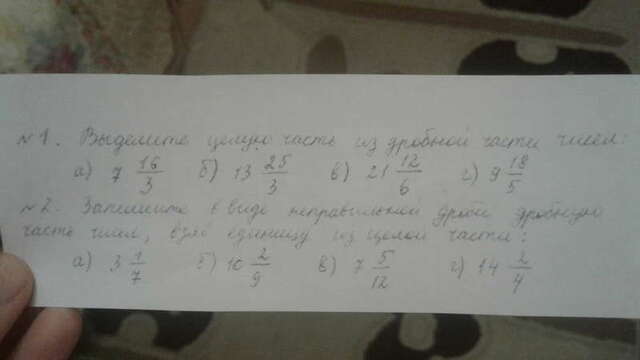 №1. Выделите целую часть из дробной части чисел:
а) 7 16/3 б) 13 25/3 в) 21 12/6 г) 9 18/5
№2. Запишите в виде неправильной дроби дробную
часть чисел, взяв единицу из целой части:
а) 3 1/7 б) 10 2/9 в) 7 5/12 г) 14 2/4